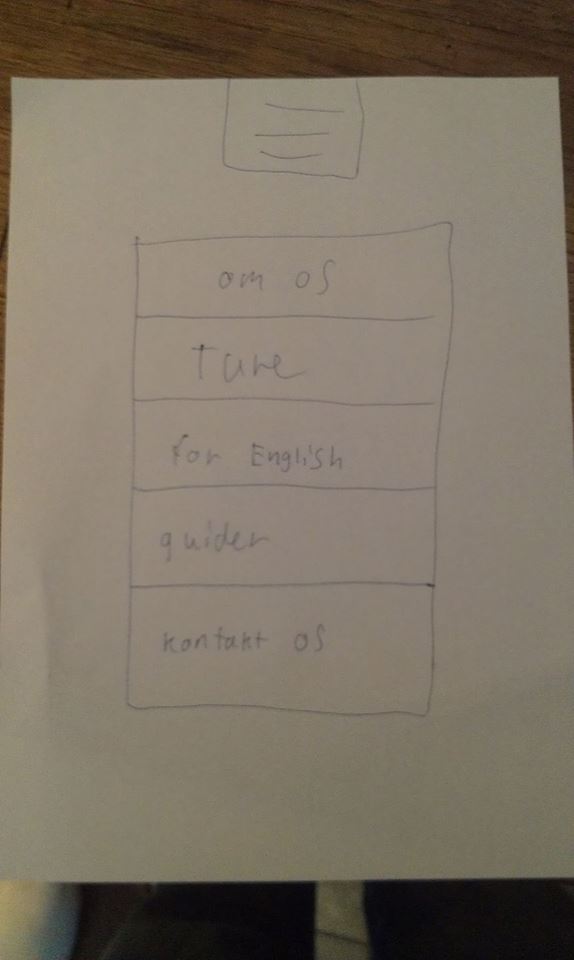 om os
Ture
for English
guider
kontakt os